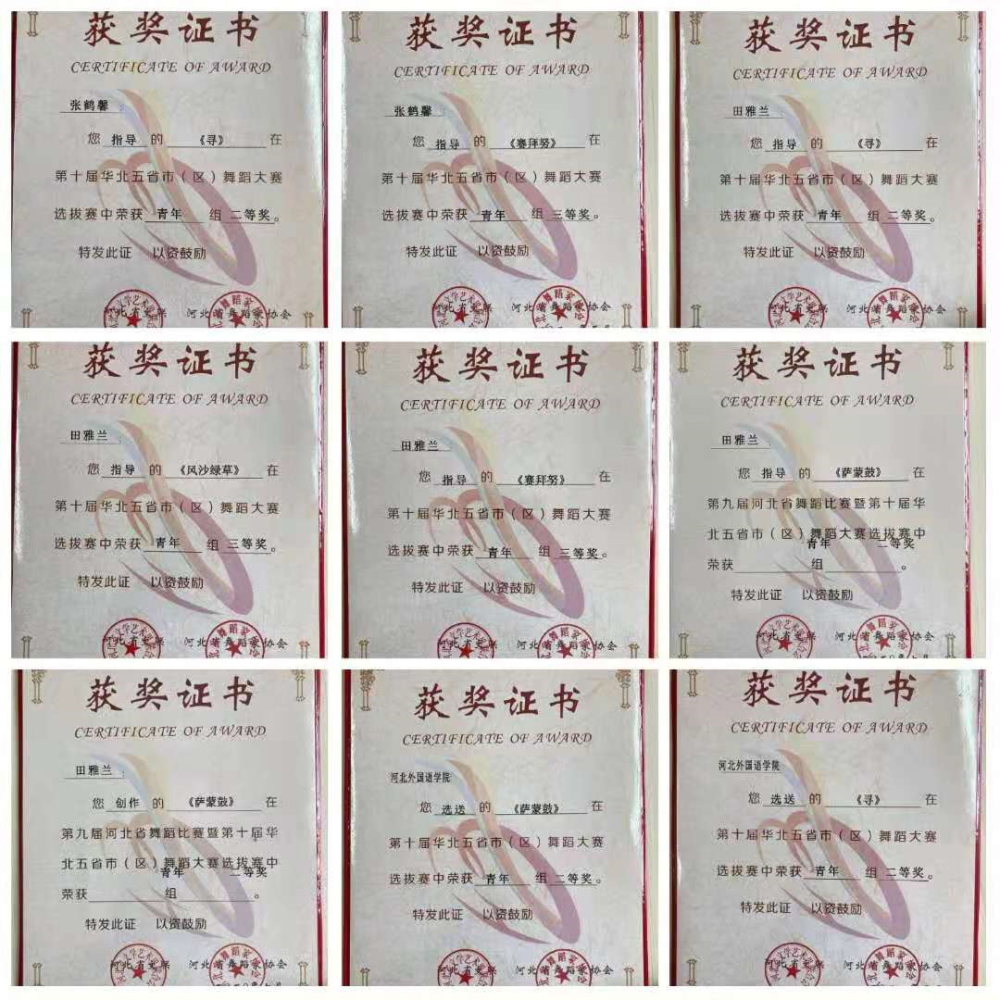 获奖证书
CERTIFICATE OF AWARD
张鹤馨:
您 指导 的 《寻》 在
第十届华北五省市（区）舞蹈大赛
选拔赛中荣获 青年 组 二等奖。
特发此证 以资鼓励
河北省文联 河北省舞蹈家协会
获奖证书
CERTIFICATE OF AWARD
张鹤馨
您 指导 的 《赛拜努》 在
第十届华北五省市（区）舞蹈大赛
选拔赛中荣获 青年 组 三等奖。
特发此证 以资鼓励
河北省文联 河北省舞蹈家协会
获奖证书
CERTIFICATE OF AWARD
田雅兰:
您 指导 的 《寻》 在
第十届华北五省市（区）舞蹈大赛
选拔赛中荣获 青年 组 二等奖。
特发此证 以资鼓励
河北省文联 河北省舞蹈家协会
获奖证书
CERTIFICATE OF AWARD
田雅兰:
您 指导 的 《风沙绿草》 在
第十届华北五省市（区）舞蹈大赛
选拔赛中荣获 青年 组 三等奖。
特发此证 以资鼓励
河北省文联 河北省舞蹈家协会
获奖证书
CERTIFICATE OF AWARD
田雅兰:
您 指导 的 《赛拜努》 在
第十届华北五省市（区）舞蹈大赛
选拔赛中荣获 青年 组 三等奖。
特发此证 以资鼓励
河北省文联 河北省舞蹈家协会
获奖证书
CERTIFICATE OF AWARD
田雅兰:
您 指导 的 《萨蒙鼓》 在
第九届河北省舞蹈比赛暨第十届华
北五省市（区）舞蹈大赛选拔赛中
荣获 青年 组 二等奖。
特发此证 以资鼓励
河北省文联 河北省舞蹈家协会
获奖证书
CERTIFICATE OF AWARD
田雅兰:
您 创作 的 《萨蒙鼓》 在
第九届河北省舞蹈比赛暨第十届华
北五省市（区）舞蹈大赛选拔赛中
荣获 青年 组 二等奖。
特发此证 以资鼓励
河北省文联 河北省舞蹈家协会
获奖证书
CERTIFICATE OF AWARD
河北外国语学院
您 选送 的 《萨蒙鼓》 在
第十届华北五省市（区）舞蹈大赛
选拔赛中荣获 青年 组 二等奖。
特发此证 以资鼓励
河北省文联 河北省舞蹈家协会
获奖证书
CERTIFICATE OF AWARD
河北外国语学院
您 选送 的 《寻》 在
第十届华北五省市（区）舞蹈大赛
选拔赛中荣获 青年 组 二等奖。
特发此证 以资鼓励
河北省文联 河北省舞蹈家协会